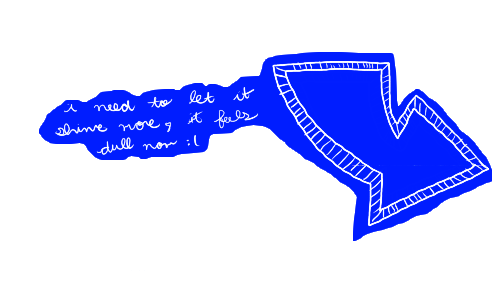 i need to let it
shine nore, it feels
dull now :(